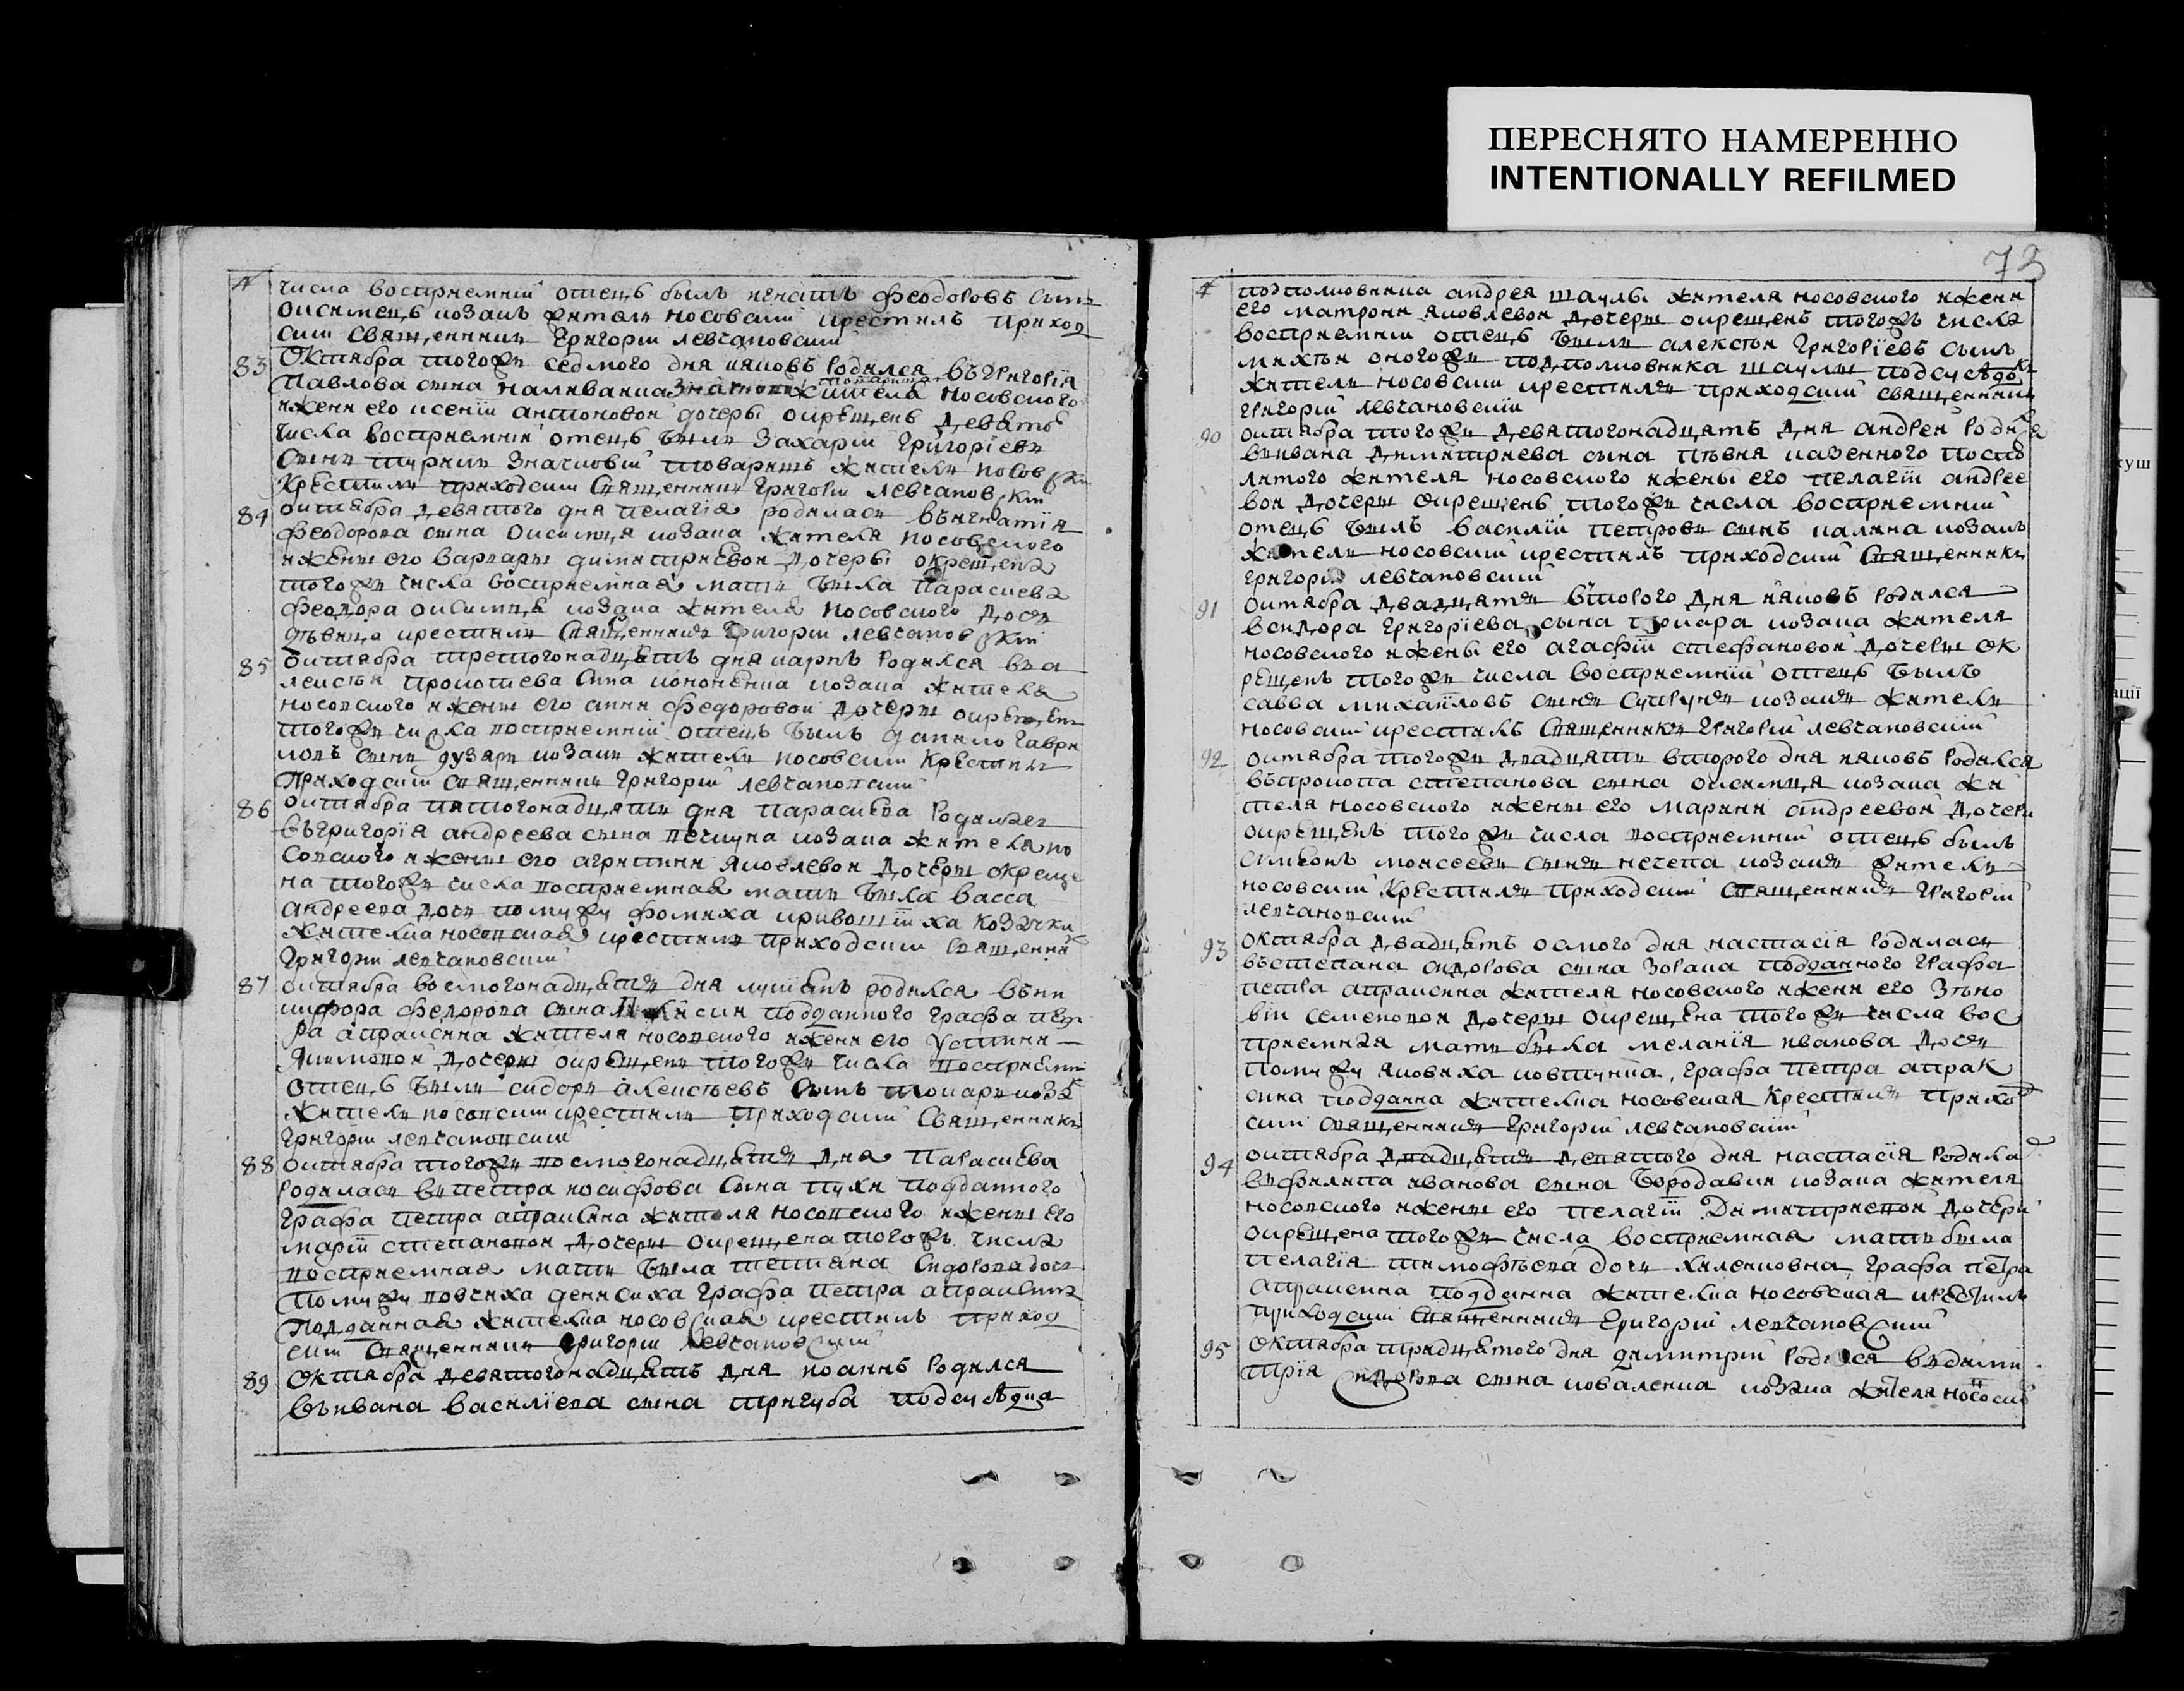 ПЕРЕСНЯТО НАМЕРЕННО
INTENTIONALLY REFILMED
числа восприемний отецъ былъ игнатъ феодоровъ сынъ
козакъ житель носовский крестилъ приход
ский священникъ григорий левчановский
83 Октября того же седмого дня иаковъ родился въ григорія
Павлова сына наливайка значкового товариша жителя носовского
и жени его ксеніи антоновой дочеры окрещенъ девятого
числа восприемний отецъ былъ захарий григоріевъ
сынъ значковий товаришъ житель носовский
крестилъ приходский священникъ григорий левчановский
84 октября девятого дня пелагія родилась въ игнатія
феодорова сына козака жителя носовского
и жены его варвары димитриевой дочеры окрещена
того же числа восприемная мати была параскева
феодора козака жителя носовского дочь
дѣвица крестилъ священникъ григорий левчановский
85 октября третогонадцять дня карпъ родился въ а
лексѣя прокопиева сына кононенка козака жителя
носовского и жены его анни федоровой дочеры окрещенъ
того же числа восприемний отецъ былъ данило гаври
ловъ сынъ дузарь козакъ житель носовский крестилъ
приходский священникъ григорий левчановский
86 октября пятогонадцять дня параскева родилась
въ григорія андреева сына печкура козака жителя но
совского и жены его агрипини яковлевой дочеры окреще
на того же числа восприемная мати была васса
андреева дочь по мужу фомиха кривошііха козачка
жителка носовская крестилъ приходский священник
григорий левчановский
87 октября восмогонадцять дня лукіянъ родился въ ни
кифора федорова сына подданного графа пет
ра апраксина жителя носовского и жени его устини
якимовой дочеры окрещенъ того же числа восприемний
отецъ былъ сидоръ алексѣевъ сынъ токарь козак
житель носовский крестилъ приходский священникъ
григорий левчановский
88 октября того же восмогонадцять дня параскева
родилась въ петра иосифова сына пухи подданного
графа петра апраксина жителя носовского и жены его
маріи степановой дочеры окрещена того же числа
восприемная мати была тетиана сидорова дочь
по мужу денисиха графа петра апраксина
подданная жителка носовская крестилъ приход
ский священникъ григорий левчановский
89 октября девятогонадцять дня иоаннъ родился
въ ивана василіева сына тригуба подсусѣдка
73
подполковника андрея шаулы жителя носовского и жени
его матрони яковлевой дочеры окрещенъ того жъ числа
восприемний отецъ былъ алексѣй григоріевъ сынъ
михѣй оного же подполковника шаулы подсусѣдокъ
житель носовский крестилъ приходский священникъ
григорий левчановский
90 октября того же девятогонадцять дня андрей родился
въ ивана димитриева сына пѣвня казенного поспо
литого жителя носовского и жены его пелагіи андрее
вой дочеры окрещенъ того же числа восприемний
отецъ былъ василій петровъ сынъ калина козакъ
житель носовский крестилъ приходский священникъ
григорий левчановский
91 октября двадцять второго дня иаковъ родился
в сидора григоріева сына токара козака жителя
носовского и жены его агафіи стефановой дочеры ок
рещенъ того же числа восприемний отецъ былъ
савва михайловъ сынъ супрунъ козакъ житель
носовский крестилъ священникъ григорій левчановский
92 октября того же двадцять второго дня иаковъ родился
въ прокопа степанова сына козака жи
теля носовского и жены его марини андреевой дочери
окрещенъ того же числа восприемний отецъ былъ
симеонъ моисеевъ сынъ нечепа козакъ житель
носовский крестилъ приходский священникъ григорій
левчановский
93 октября двадцять осмого дня настасія родилась
въ степана сидорова сына зорака подданного графа
петра апраксина жителя носовского и жени его зѣно
віи семеновой дочеры окрещена того же числа вос
приемная мати была меланія иванова дочь
по мужу яковиха ковтунка, графа петра апрак
сина подданна жителка носовская крестилъ приход
ский священникъ григорий левчановский
94 октября двадцять девятого дня настасія родилась
въ филипа иванова сына бородавки козака жителя
носовского и жены его пелагіи димитриевой дочери
окрещена того же числа восприемная мати была
пелагія тимофѣева дочь халековна графа петра
апраксина подданна жителка носовская крестилъ
приходский священникъ григорий левчановский
95 октября тридцятого дня димитрий родился въ дими
трія сидорова сына коваленка козака жителя носовс